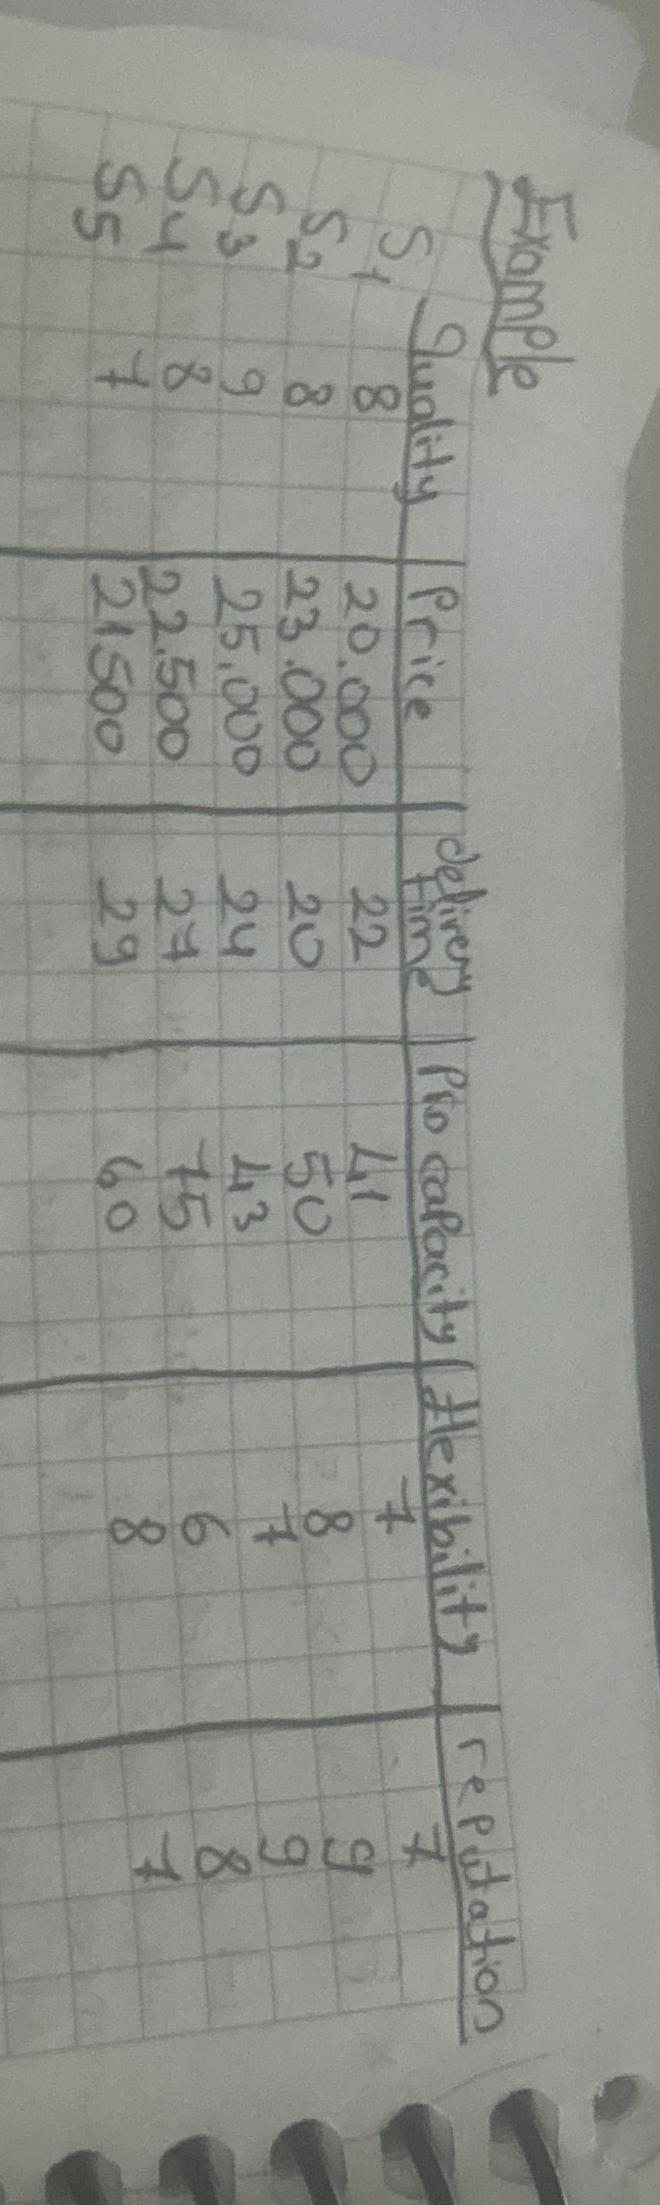 Example
Quality | Price | delivery time | Pro capacity | flexibility | reputation
S1 8 20.000 22 41 7 7
S2 8 23.000 20 50 8 9
S3 9 25.000 24 43 7 9
S4 8 22.500 27 75 6 8
S5 7 21.500 29 60 8 7